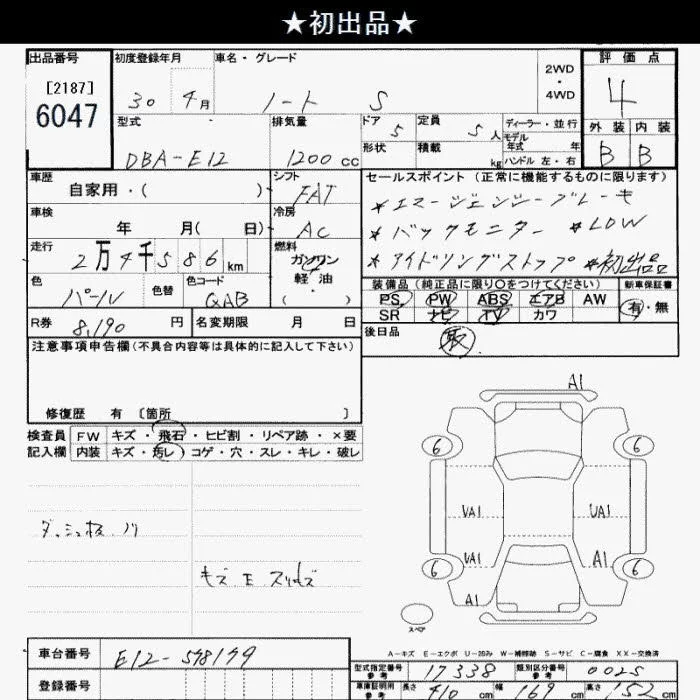 ★初出品★
出品番号 初度登録年月 車名・グレード 2WD・4WD 評価点
[2187] 6047 30年 4月 ノート S 4
型式 排気量 ドア 5 定員 5人 ディーラー・並行 外装 内装
DBA-E12 1200cc 形状 積載 kg モデル年式 年 ハンドル 左・右 B B
車歴 自家用・( ) シフト FAT セールスポイント (正常に機能するものに限ります)
車検 年 月( 日) 冷房 AC ★エマージェンジーブレーキ
★バックモニター ★LDW
走行 2万4千586km 燃料 ガソリン 軽油 ( ・ ) ★アイドリングストップ ★初出品
色 パール 色替 色コード QAB 装備品 (純正品に限り○をつけてください) 新車保証書
PS PW ABS エアB AW 有・無
R券 8,190円 名変期限 月 日 SR ナビ TV カワ
注意事項申告欄(不具合内容等は具体的に記入して下さい) 後日品 取
修復歴 有 〔箇所 〕
検査員 FW キズ・飛石・ヒビ割・リペア跡・×要
記入欄 内装 キズ・汚レ・コゲ・穴・スレ・キレ・破レ
A1
6 6
UA1 UA1
UA1 A1
6 6
A1
スペア
A-キズ E-エクボ U-凹み W-補修跡 S-サビ C-腐食 XX-交換済
車台番号 E12-578179 型式指定番号 参考 17338 類別区分番号 参考 0025
登録番号 車庫証明用 参考 長さ 410cm 幅 169cm 高さ 152cm